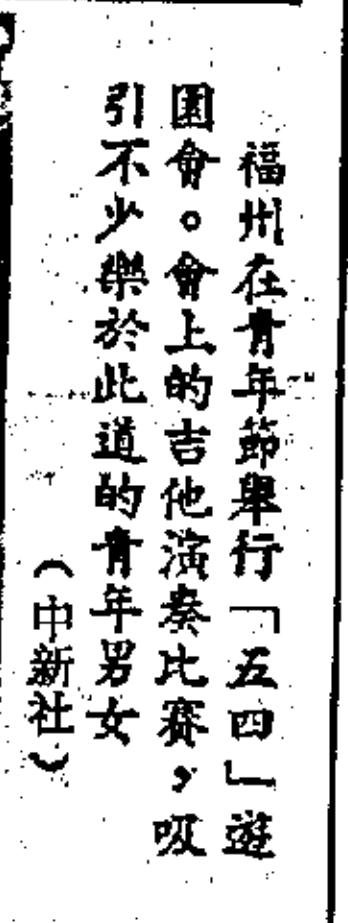 福州在青年節舉行「五四」遊
園會。會上的吉他演奏比賽，吸
引不少樂於此道的青年男女
（中新社）